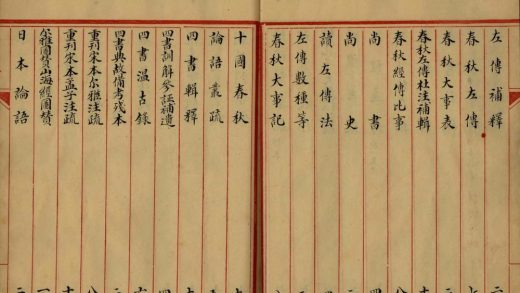 左傳補釋
春秋左傳
春秋大事表
春秋左傳杜注補輯
春秋經傳比事
尚書
尚史
讀左傳法
左傳數種等
春秋大事記
十國春秋
論語叢疏
四書輯釋
四書訓解參證補遺
四書溫古錄
四書典故備考殘本
重刊宋本尔雅注疏
重刊宋本孟子注疏
尔雅圖贊山海經圖贊
日本論語